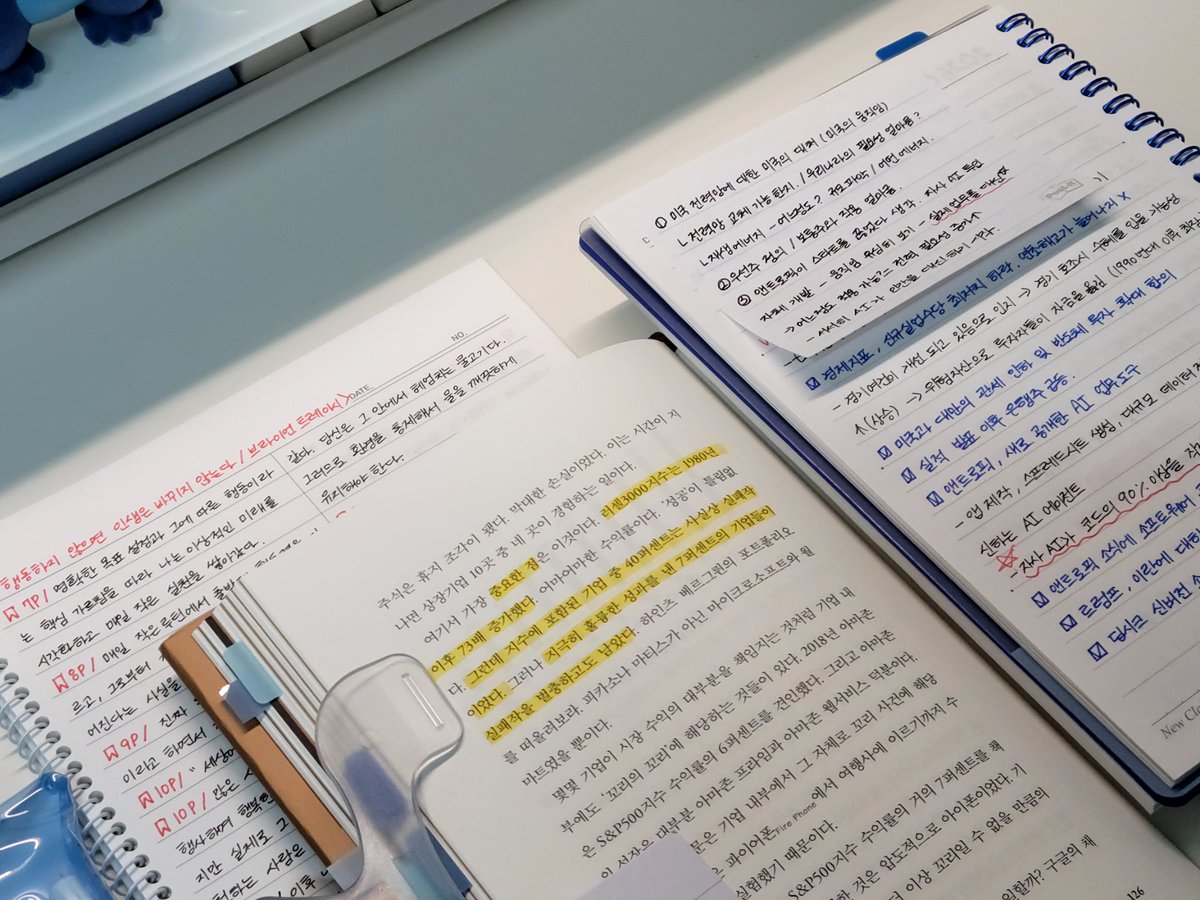 NO.
DATE
행동하지 않으면 인생은 바뀌지 않는다 / 브라이언 트레이시>
7P/ 명확한 목표 설정과 그에 따른 행동이라
는 핵심 가르침을 따라 나는 이상적인 미래를
시각화하고 매일 작은 실천을 쌓아간다.
8P/ 매일 작은 루틴에서 출발
르고, 그로부터
어진다는 사실을
9P/ 진짜
이라고 하면서
10P/ "세상이
10P/ 많은
행사하여 행복한
지만 실제로 그
려하는 사람은
이후
같다. 당신은 그 안에서 헤엄치는 물고기다.
그러므로 환경을 통제해서 물을 깨끗하게
유지해야 한다.
주식은 휴지 조각이 됐다. 막대한 손실이었다. 이는 시간이 지
나면 상장기업 10곳 중 네 곳이 경험하는 일이다.
여기서 가장 중요한 점은 이것이다. 러셀3000지수는 1980년
이후 73배 증가했다. 어마어마한 수익률이다. '성공'이 틀림없
다. 그런데 지수에 포함된 기업 중 40퍼센트는 사실상 실패작
이었다. 그러나 지극히 훌륭한 성과를 낸 7퍼센트의 기업들이
실패작을 벌충하고도 남았다. 하인츠 베르그륀의 포트폴리오
를 떠올려보라. 피카소나 마티스가 아닌 마이크로소프트와 월
마트였을 뿐이다.
몇몇 기업이 시장 수익의 대부분을 책임지는 것처럼 기업 내
부에도 '꼬리의 꼬리'에 해당하는 것들이 있다. 2018년 아마존
은 S&P500지수 수익률의 6퍼센트를 견인했다. 그리고 아마존
의 성장은 대부분 아마존 프라임과 아마존 웹서비스 덕분이다.
은 기업 내부에서 그 자체로 꼬리 사건에 해당
은 파이어폰Fire Phone에서 여행사에 이르기까지 수
실험했기 때문이다.
S&P500지수 수익률의 거의 7퍼센트를 책
한 것은 압도적으로 아이폰이었다. 기
더 이상 꼬리일 수 없을 만큼의
일할까? 구글의 채
126
① 미국 전력망에 대한 미국의 대처 (미국의 움직임)
ㄴ 전력망 교체 가능한지. / 우리나라의 필요성 얼마큼?
ㄴ 재생에너지 - 어느정도? 규모 파악 / 어떤 에너지.
② 우선주 정의 / 보통주와 차용 얼마큼.
③ 앤트로픽이 스타트를 끊었다 생각. 자사 AI 툭업
자체 개발 - 움직임 유심히 보기 - 실제 업무를 대신
→ 어느정도 적용 가능? = 전력 필요성 증가↑
- 서서히 AI가 인간을 대신하여 시작.
경제지표, 신규실업수당 최저치 하락, 연초해고가 늘어나지 X
- 경기여건이 개선 되고 있음으로 인지 → 경기 호조시 수혜를 입을 가능성
↑(상승) → 위험자산으로 투자자들이 자금을 옮김 (1990년대 이후 최장
미국과 대만의 관세 인하 및 반도체 투자 확대 합의
실적 발표 이후 은행주 급등.
앤트로픽, 새로 공개한 AI 업무도구
- 앱 제작, 스프레드시트 생성, 대규모 데이터
신하는 AI 에이전트
- 자사 AI가 코드의 90% 이상을
앤트로픽 소식에 소프트웨어
트럼프, 이란에 대한
딥시크 신버전
New